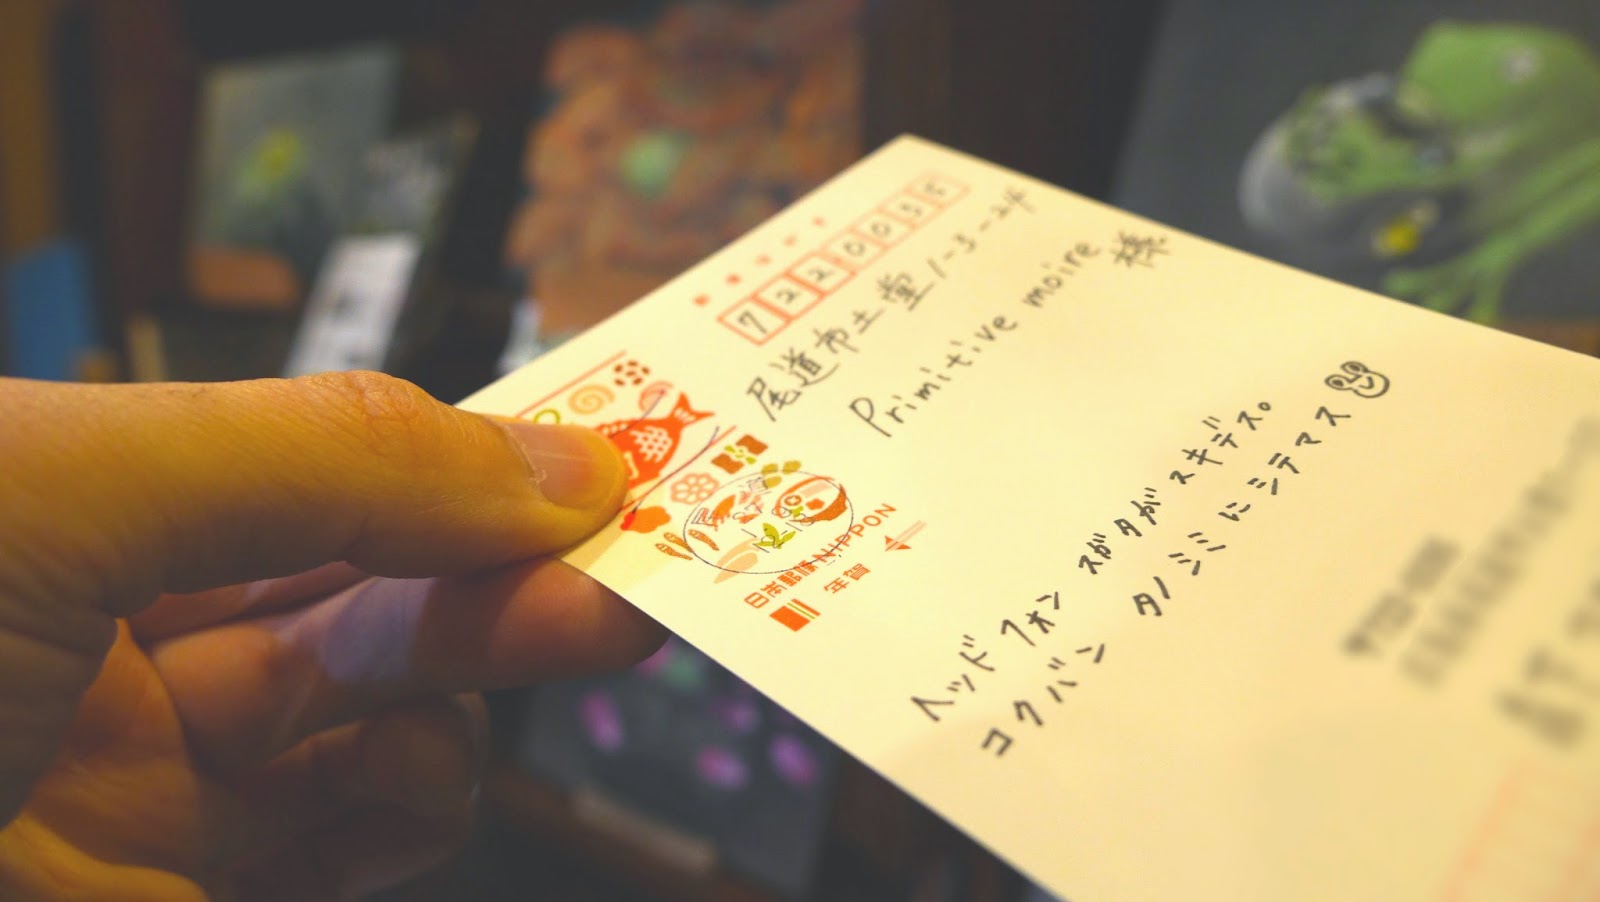 7220035
尾道市土堂1-3-24
Primitive moire 様
ヘッドフォン スガタが スキデス。
コクバン タノシミに シテマス
日本郵便NIPPON
年賀